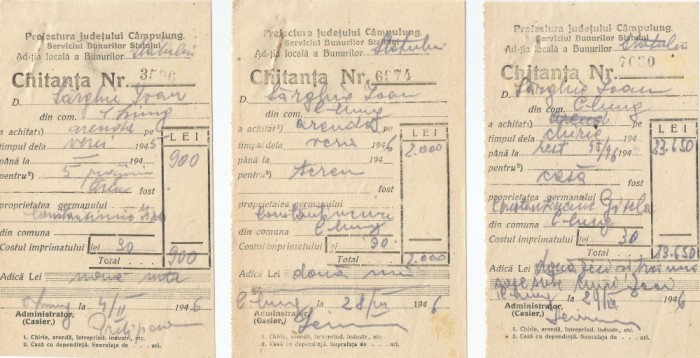 Prefectura Județului Câmpulung
Serviciul Bunurilor Statului
Ad-ția locală a Bunurilor Statului
Chitanța Nr. 3896
D. Sârghie Ioan
din com. C-lung
a achitat¹) arenda pe
timpul dela verii 1945
până la 194
pentru²) 5
fost
proprietatea germanului
din comuna
Costul imprimatului lei 30
LEI
900
Total 900
Adică Lei nouă sute
C-lung la 4/II 1946
Administrator,
(Casier,)
1. Chirie, arendă, întreprind. industr., etc.
2. Casă cu dependință. Suprafața de . . . . ari.
Prefectura Județului Câmpulung
Serviciul Bunurilor Statului
Ad-ția locală a Bunurilor Statului
Chitanța Nr. 6874
D. Sârghie Ioan
din com. C-lung
a achitat¹) arenda pe
timpul dela vera 1946
până la 194
pentru²) teren
fost
proprietatea germanului
din comuna C-lung
Costul imprimatului lei 30
LEI
2.000
Total 2.000
Adică Lei două mii
C-lung la 28/VI 1946
Administrator,
(Casier,)
1. Chirie, arendă, întreprind. industr., etc.
2. Casă cu dependință. Suprafața de . . . . ari.
Prefectura Județului Câmpulung
Serviciul Bunurilor Statului
Ad-ția locală a Bunurilor Statului
Chitanța Nr. 7090
D. Sârghie Ioan
din com. C-lung
a achitat¹) arenda pe
chirie
timpul dela rest 45/46 194
până la 194
pentru²) casă
fost
proprietatea germanului
Gisela
din comuna C-lung
Costul imprimatului lei 30
LEI
23.650
Total 23.650
Adică Lei două zeci și trei mii
șase sute cinci zeci
C-lung la 29/ 1946
Administrator,
(Casier,)
1. Chirie, arendă, întreprind. industr., etc.
2. Casă cu dependință. Suprafața de . . . . ari.